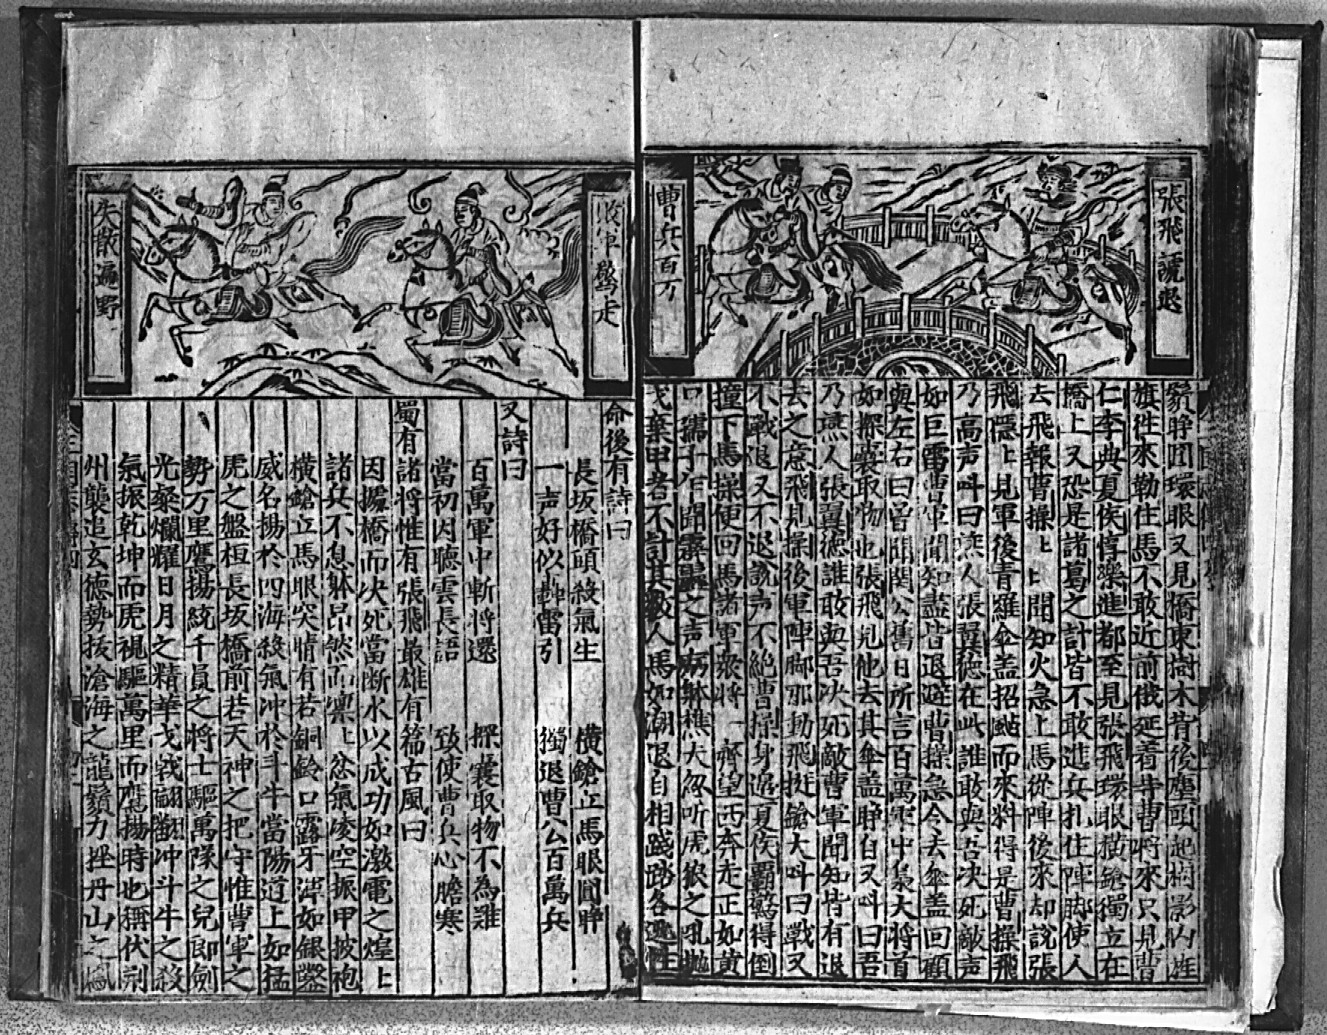 張飛諕退
曹兵百万
鬚睁圓環眼又見橋東樹木背後塵頭起樹影内旌
旗徃來勒住馬不敢近前俄延着寺曹將來只見曹
仁李典夏侯惇樂進都至見張飛環眼橫鎗獨立在
橋上又恐是諸葛之計皆不敢進兵扎住陣脚使人
去飛報曹操上上聞知火急上馬從陣後來却說張
飛隱上見軍後青羅傘盖招颭而來料得是曹操飛
乃高声呌曰燕人張翼德在此誰敢與吾决死敵声
如巨雷曹軍聞知盡皆退避曹操急令去傘盖回顧
與左右曰曾聞關公舊日所言百萬軍中梟大將首
如探囊取物也張飛見他去其傘盖睁目又呌曰吾
乃燕人張翼德誰敢與吾决死敵曹軍聞知皆有退
去之意飛見操後軍陣脚那動飛挺鎗大呌曰戰又
不戰退又不退說声不絶曹操身邉夏侯霸驚得倒
撞下馬操便回馬諸軍衆將一齊望西奔走正如黄
口孺子乍聞霹靂之声病躰樵夫忽听虎狼之吼抛
戈棄甲者不計其數人馬如潮退自相踐踏各逃性
敗軍驚走
失散遍野
命後有詩曰
長坂橋頭殺氣生 橫鎗立馬眼圓睁
一声好似轟雷引 獨退曹公百萬兵
又詩曰
百萬軍中斬將還 探囊取物不為難
當初因聽雲長語 致使曹兵心膽寒
蜀有諸將惟有張飛最雄有篇古風曰
因據橋而决死當断水以成功如激電之煌上
諸兵不怠躰昂然而凛上忿氣凌空振甲披袍
橫鎗立馬眼突情有若銅鈴口露牙渀如銀鑿
威名揚於四海殺氣冲於斗牛當陽道上如猛
虎之盤桓長坂橋前若天神之把守惟曹軍之
勢万里鷹揚統千員之將士驅萬隊之兒郎劍
光燦爛耀日月之精華戈戟翩翻冲斗牛之殺
氣振乾坤而虎視驅萬里而鷹揚時也稱伏荆
州襲追玄德勢拔滄海之龍鬚力挫丹山之鳳